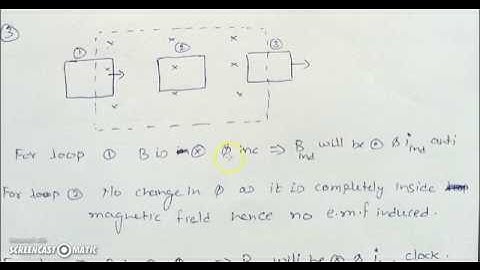 ③
① ② ③
For loop ① B is ⊗ ϕ inc ⇒ B ind will be ⊙ & i ind anti
For loop ② No change in ϕ as it is completely inside
magnetic field hence no e.m.f induced.
will be ⊗ & i clock.
SCREENCAST-O-MATIC